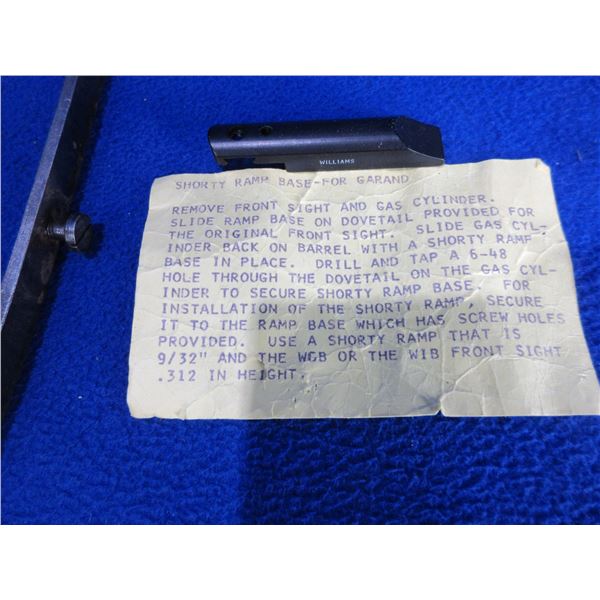 WILLIAMS
SHORTY RAMP BASE-FOR GARAND
REMOVE FRONT SIGHT AND GAS CYLINDER.
SLIDE RAMP BASE ON DOVETAIL PROVIDED FOR
THE ORIGINAL FRONT SIGHT. SLIDE GAS CYL-
INDER BACK ON BARREL WITH A SHORTY RAMP
BASE IN PLACE. DRILL AND TAP A 6-48
HOLE THROUGH THE DOVETAIL ON THE GAS CYL-
INDER TO SECURE SHORTY RAMP BASE. FOR
INSTALLATION OF THE SHORTY RAMP, SECURE
IT TO THE RAMP BASE WHICH HAS SCREW HOLES
PROVIDED. USE A SHORTY RAMP THAT IS
9/32" AND THE WGB OR THE WIB FRONT SIGHT
.312 IN HEIGHT.